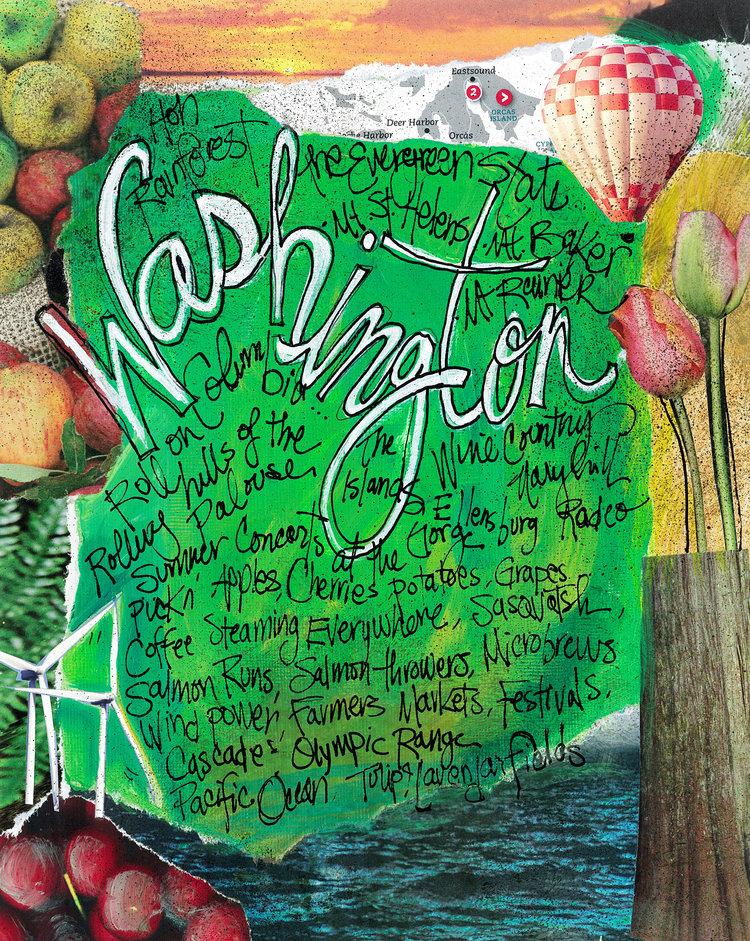 Eastsound
2
ORCAS
ISLAND
Deer Harbor
Harbor
Orcás
Hoh
Rainforest
the Evergreen State...
Mt. St. Helens · Mt. Baker
Mt Rainier
Washington
Roll on Columbia...
Rolling hills of the
Palouse
The
Islands
Wine Country
Maryhill
Summer Concerts at the Gorge
& Ellensburg Rodeo
Pick'n Apples Cherries potatoes, Grapes
Coffee Steaming Everywhere, Sasquatsh,
Salmon Runs, Salmon-throwers, Microbrews
Wind power Farmers Markets, Festivals,
Cascades' Olympic Range
Pacific Ocean, Tulip & Lavendar fields